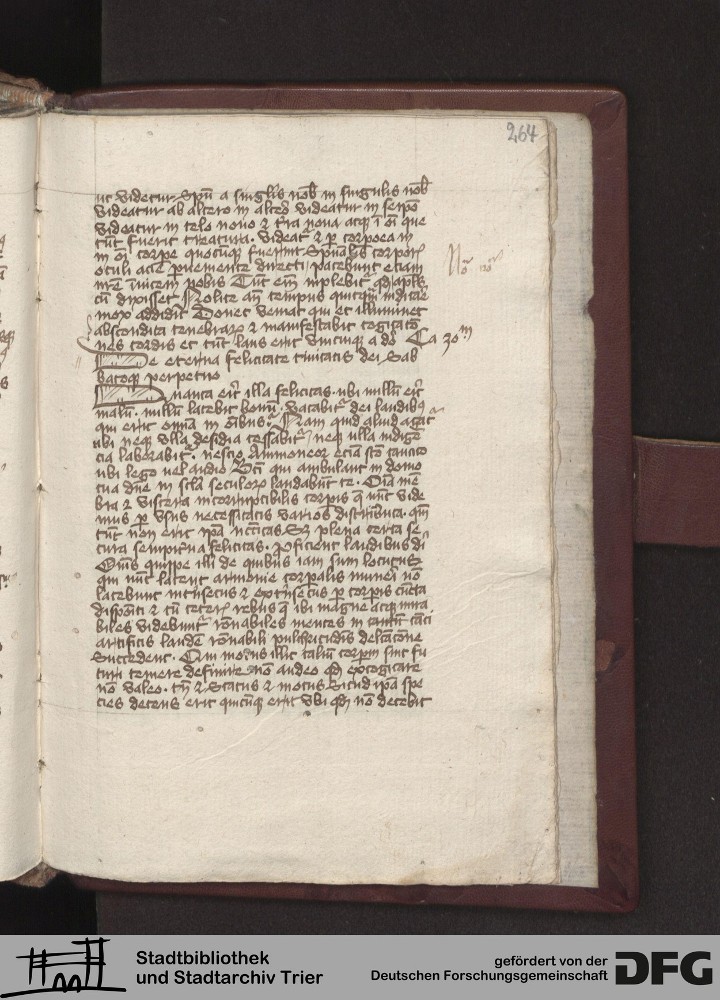 264
ut videtur Spũ a singl'is nob̃ in singulis nob̃
videatur ab altero in alt'o videatur in seip̃o
videatur in celo nouo ⁊ t'ra noua atq̃ ĩ oi͂ que
tũc fuerit creatura. videat' ⁊ p corpoea in
in oĩ corpe quocũq̃ fuerint spũalis corpor'
oculi acie p'ueniente directi pacebunt eciam
nr̃e inuicem nobis Tũc em̃ inplebit' qd' apl's
cũ dixisset Nolite añ tempus quicq̃ iudicare
mox addidit Donec veniat qui et illuminet
abscondita tenebrarꝝ ⁊ manifestabit cogitacõ
nes cordis et tũc laus erit vnicuiq̃ a dõ Ca 30m
De eterna felicitate ciuitatis dei Sab
batoq̃ perpetuo
Quanta erit' illa felicitas ubi nullũ erit'
malũ. nullũ latebit bonũ. vacabit' dei laudib9
qui erit omnia in oĩbus. Nam quid aliud agat'
ubi neq̃ vlla desidia cessabit' neq̃ ulla indigẽ
cia laborabit'. nescio Ammoneor eciã sc̃o cantico
ubi lego vel audio Bt̃i qui ambulant in domo
tua dñe in sc̃la seculorꝝ laudabũt te. Oĩa mẽ
bra ⁊ viscera incorruptibilis corpis q̃ nũc vide
mus p vsus necessitatis varios distributa. qm̃
tũc non erit ip̃a nc̃citas Sꝫ plena certa se
cura sempit'na felicitas. p̃ficient laudibus di'
Om̃s quippe illi de quibus iam sum locutus
qui nũc latent armonie corpalis numeri nõ
latebunt intrinsecus ⁊ extrinsecus p corpis cũcta
dispositi ⁊ cũ ceteris rebus q̃ ibi magne atq̃ mira
biles videbunt' rõnabiles mentes in tanti
artificis laudẽ rõnabili pulchritudinis delc̃acõne
succendent. Qui motus illic taliũ corpm sint fu
turi temere definire nõ audeo qd' excogitare
nõ valeo. tñ ⁊ status ⁊ motus sicud ip̃a spe
cies decens erit quicũq̃ erit vbi qd' nõ decebit
Stadtbibliothek
und Stadtarchiv Trier
gefördert von der
Deutschen Forschungsgemeinschaft
DFG